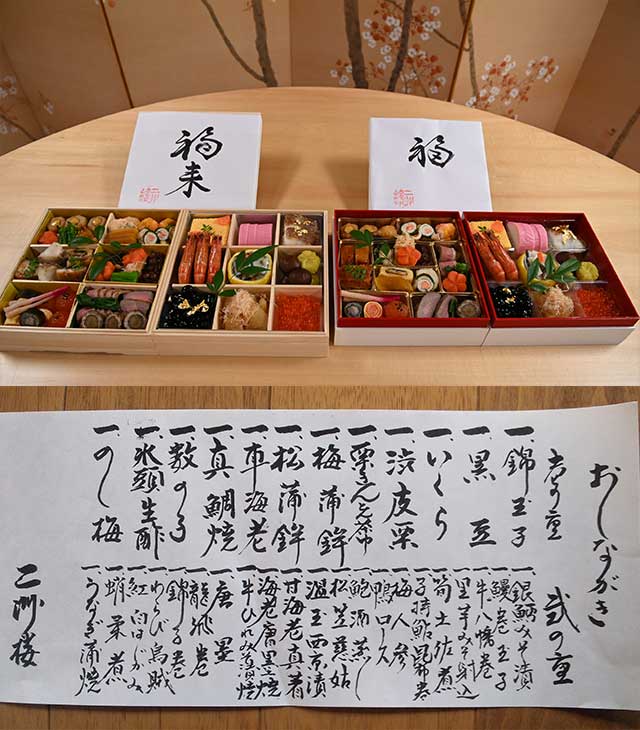 福来
福
おしながき
壱の重
一、錦玉子
一、黒豆
一、いくら
一、渋皮栗
一、栗きんとん茶巾
一、梅蒲鉾
一、松蒲鉾
一、車海老
一、真鯛焼
一、数の子
一、氷頭生酢
一、のし梅
弐の重
一、銀鱈みそ漬
一、鰻巻玉子
一、牛八幡巻
一、里芋みそ射込
一、筍土佐煮
一、子持鮎昆布巻
一、梅人参
一、鴨ロース
一、鮑酒蒸し
一、松笠慈姑
一、温玉西京漬
一、甘海老真着
一、海老唐墨焼
一、牛ひれみそ漬焼
一、唐墨
一、龍飛巻
一、わらび烏賊
一、紅白はじかみ
一、蛸柔煮
一、うなぎ蒲焼
二洲楼